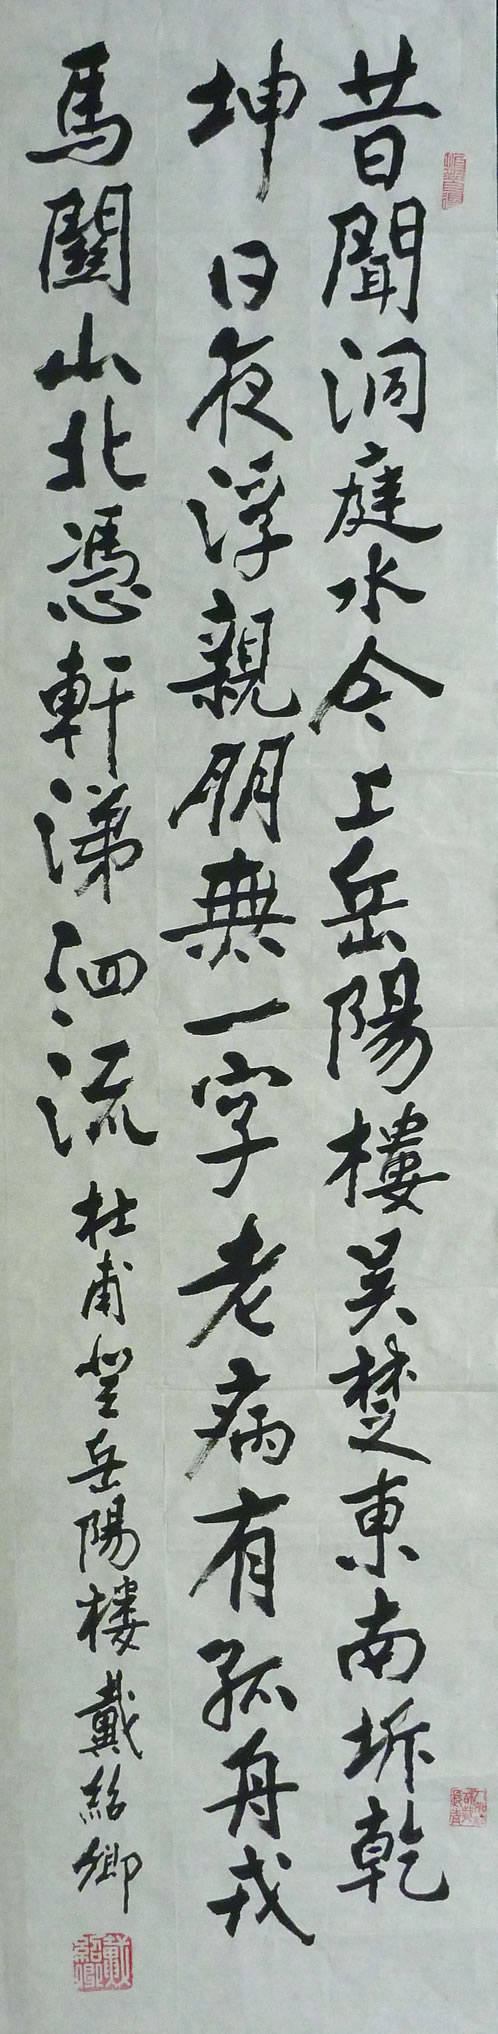 昔聞洞庭水今上岳陽樓吳楚東南坼乾
坤日夜浮親朋無一字老病有孤舟戎
馬關山北憑軒涕泗流
杜甫登岳陽樓戴紹卿